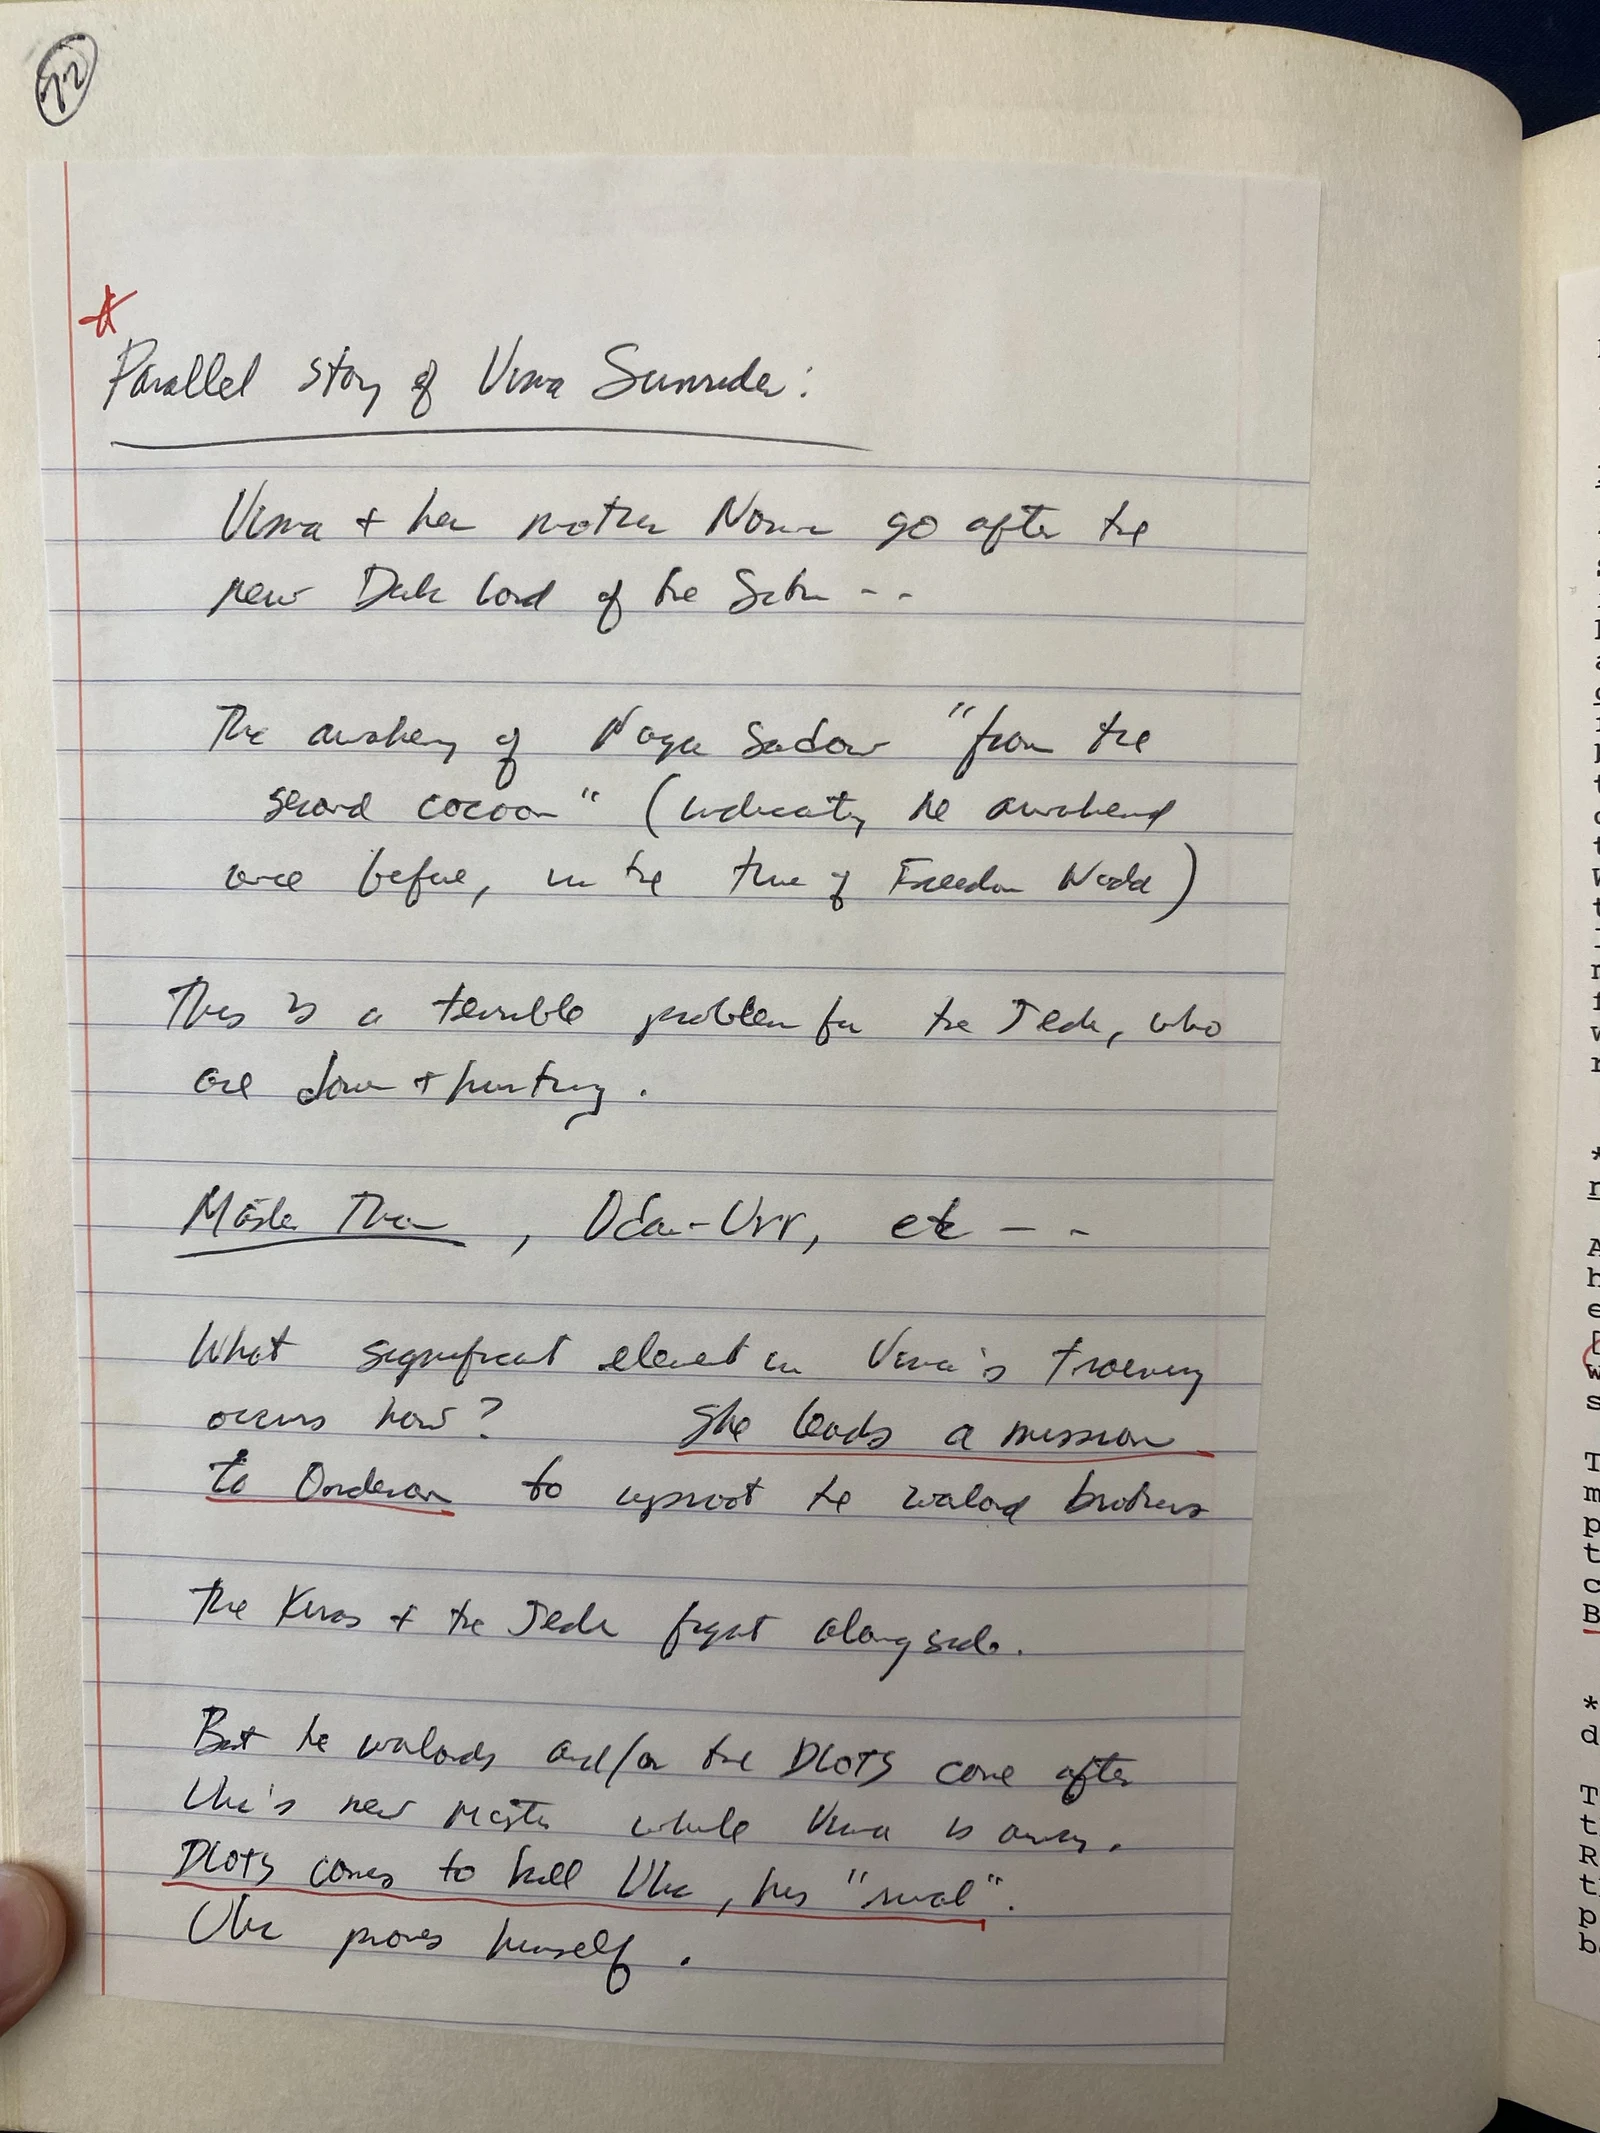 72
Parallel story of Vima Sunrider:
Vima + her mother Nomi go after the
new Dark Lord of the Sith - -
The awakening of Naga Sadow "from the
second cocoon" (indicating he awakened
once before, in the time of Freedon Nadd)
This is a terrible problem for the Jedi, who
are down + hurting.
Master Thon, Odan-Urr, etc - -
What significant element in Vima's training
occurs now? She leads a mission
to Onderon to uproot the warlord brothers
The Kiras + the Jedi fight alongside.
But the warlords and/or the DLOTS come after
Ulic's new master while Vima is away.
DLOTS comes to kill Ulic, his "rival".
Ulic proves himself.